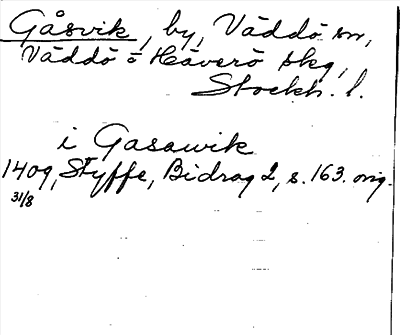 Gåsvik, by, Väddö sn,
Väddö o Häverö skg,
Stockh. l.
i Gasawik
1409, Styffe, Bidrag 2, s. 163. orig.
31/8